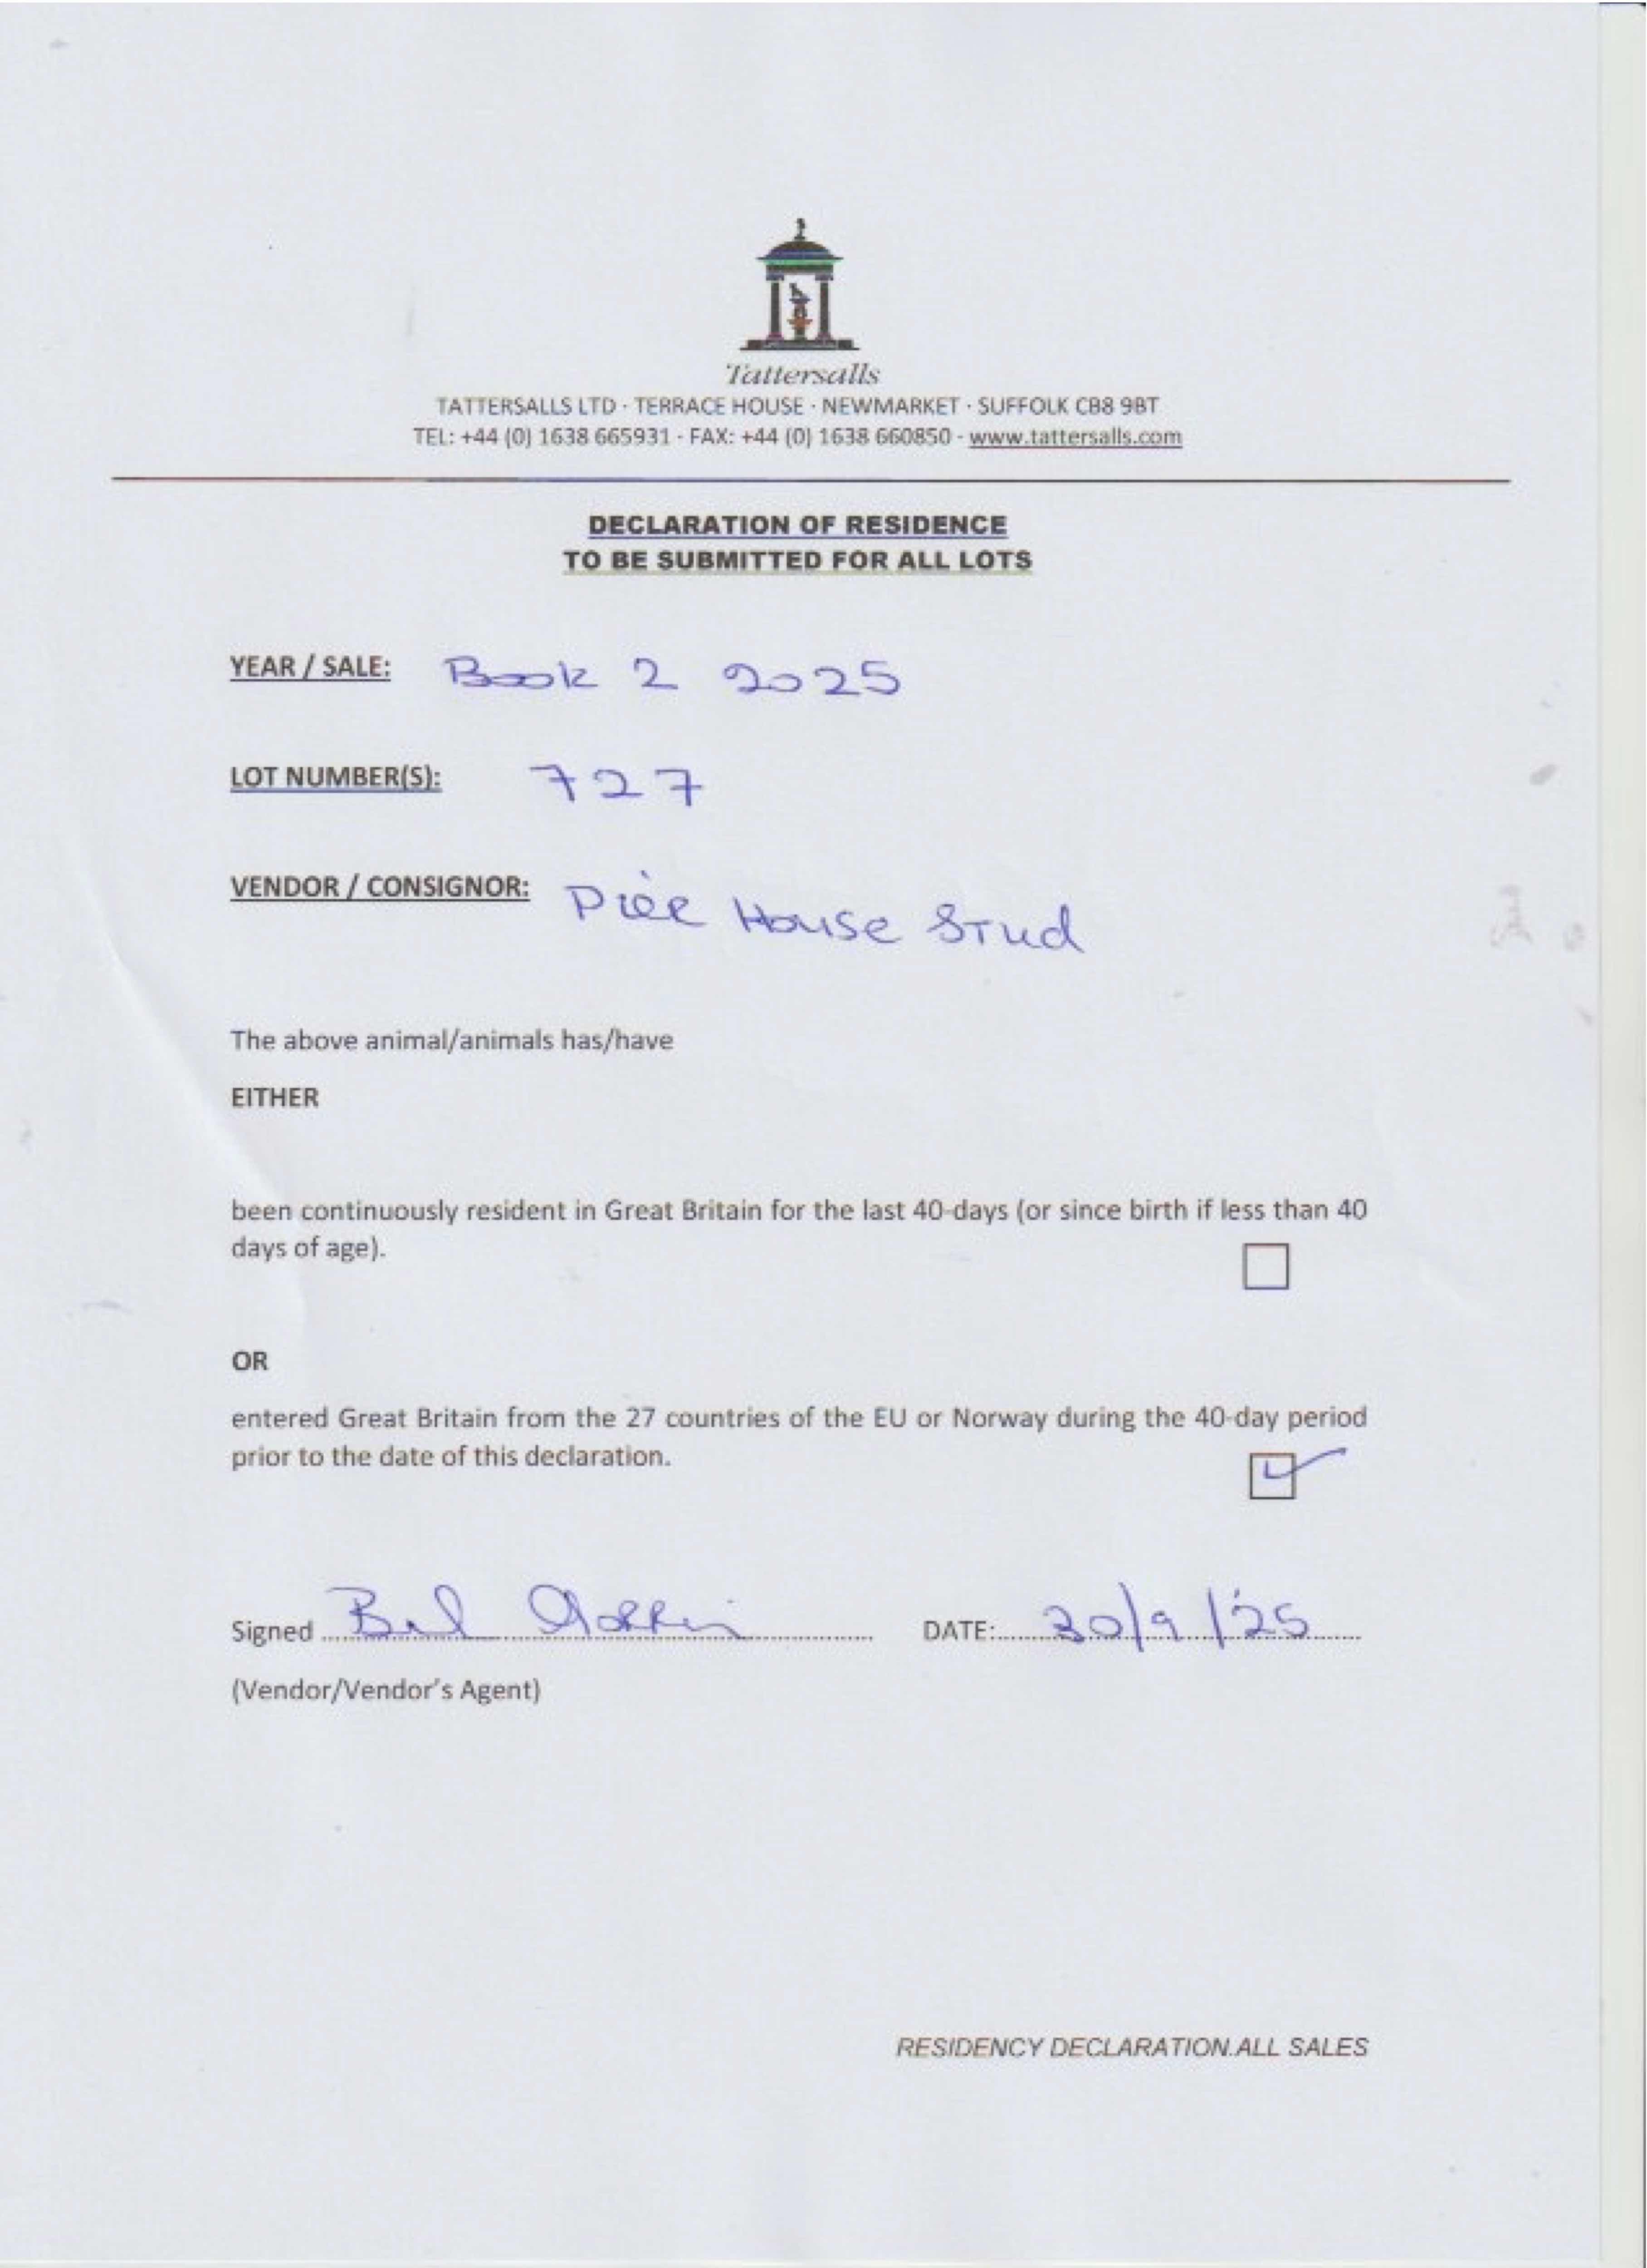 Tattersalls
TATTERSALLS LTD · TERRACE HOUSE · NEWMARKET · SUFFOLK CB8 9BT
TEL: +44 (0) 1638 665931 - FAX: +44 (0) 1638 660850 - www.tattersalls.com
DECLARATION OF RESIDENCE
TO BE SUBMITTED FOR ALL LOTS
YEAR / SALE: Book 2 2025
LOT NUMBER(S): 727
VENDOR / CONSIGNOR: Pier House Stud
The above animal/animals has/have
EITHER
been continuously resident in Great Britain for the last 40-days (or since birth if less than 40
days of age).
OR
entered Great Britain from the 27 countries of the EU or Norway during the 40-day period
prior to the date of this declaration.
Signed DATE: 30/9/25
(Vendor/Vendor's Agent)
RESIDENCY DECLARATION.ALL SALES